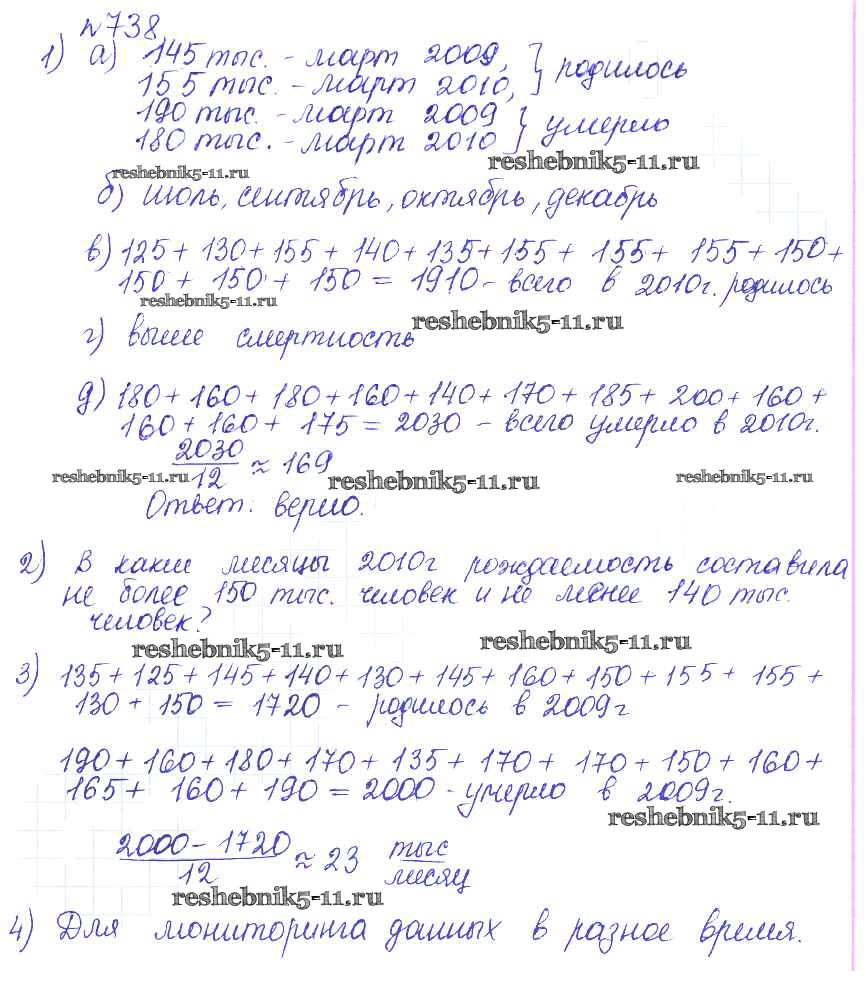 №738
1) а) 145 тыс. - март 2009,
155 тыс. - март 2010, } родилось
190 тыс. - март 2009
180 тыс. - март 2010 } умерло
reshebnik5-11.ru
reshebnik5-11.ru
б) Июль, сентябрь, октябрь, декабрь
в) 125 + 130 + 155 + 140 + 135 + 155 + 155 + 155 + 150 +
150 + 150 + 150 = 1910 - всего в 2010г. родилось
reshebnik5-11.ru
reshebnik5-11.ru
г) выше смертность
д) 180 + 160 + 180 + 160 + 140 + 170 + 185 + 200 + 160 +
160 + 160 + 175 = 2030 - всего умерло в 2010г.
2030/12 ≈ 169
reshebnik5-11.ru
reshebnik5-11.ru
reshebnik5-11.ru
Ответ: верно.
2) В какие месяцы 2010г рождаемость составила
не более 150 тыс. человек и не менее 140 тыс.
человек?
reshebnik5-11.ru
reshebnik5-11.ru
3) 135 + 125 + 145 + 140 + 130 + 145 + 160 + 150 + 155 + 155 +
130 + 150 = 1720 - родилось в 2009г
190 + 160 + 180 + 170 + 135 + 170 + 170 + 150 + 160 +
165 + 160 + 190 = 2000 - умерло в 2009г.
reshebnik5-11.ru
2000 - 1720/12 ≈ 23 тыс/месяц
reshebnik5-11.ru
4) Для мониторинга данных в разное время.